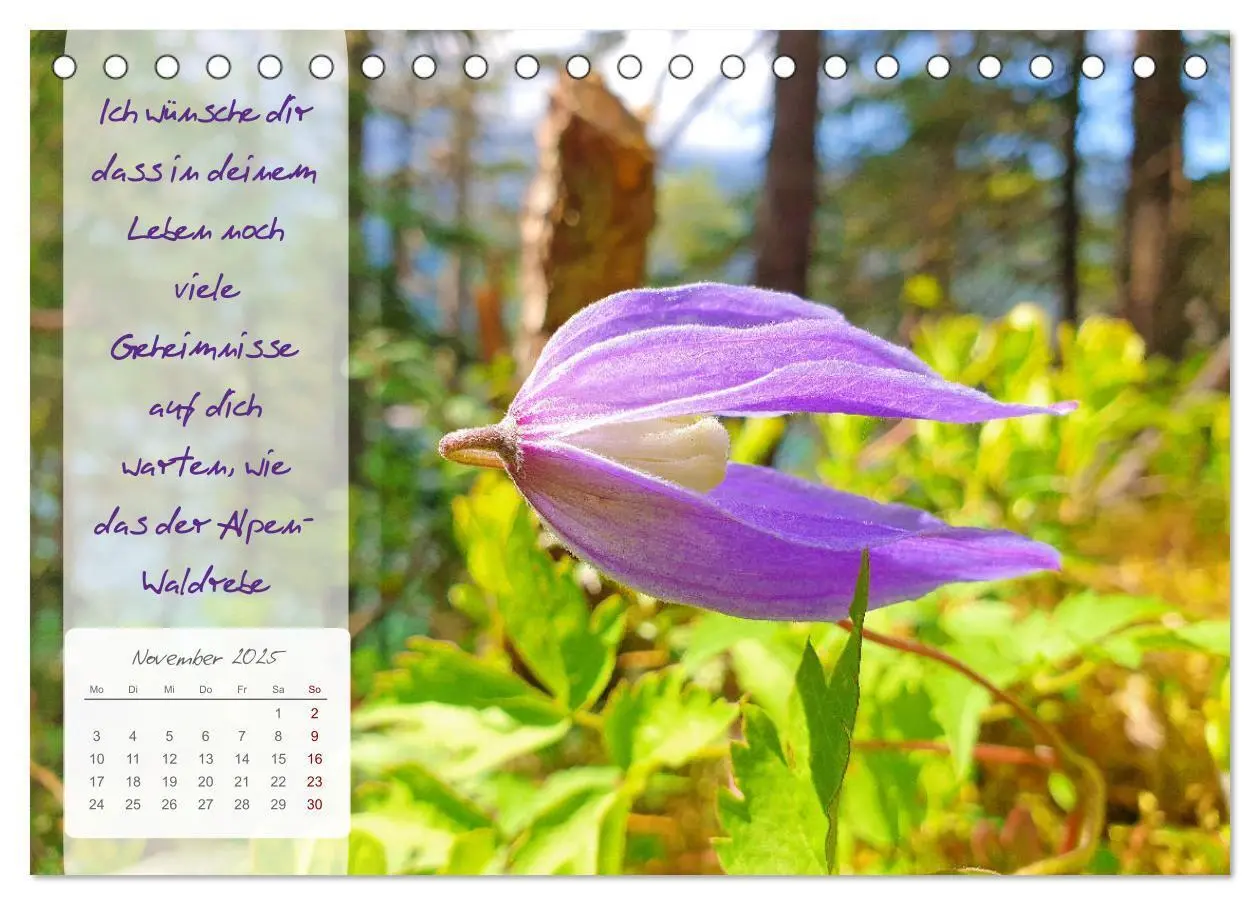 Ich wünsche dir
dass in deinem
Leben noch
viele
Geheimnisse
auf dich
warten, wie
das der Alpen-
Waldrebe
November 2025
Mo Di Mi Do Fr Sa So
1 2
3 4 5 6 7 8 9
10 11 12 13 14 15 16
17 18 19 20 21 22 23
24 25 26 27 28 29 30